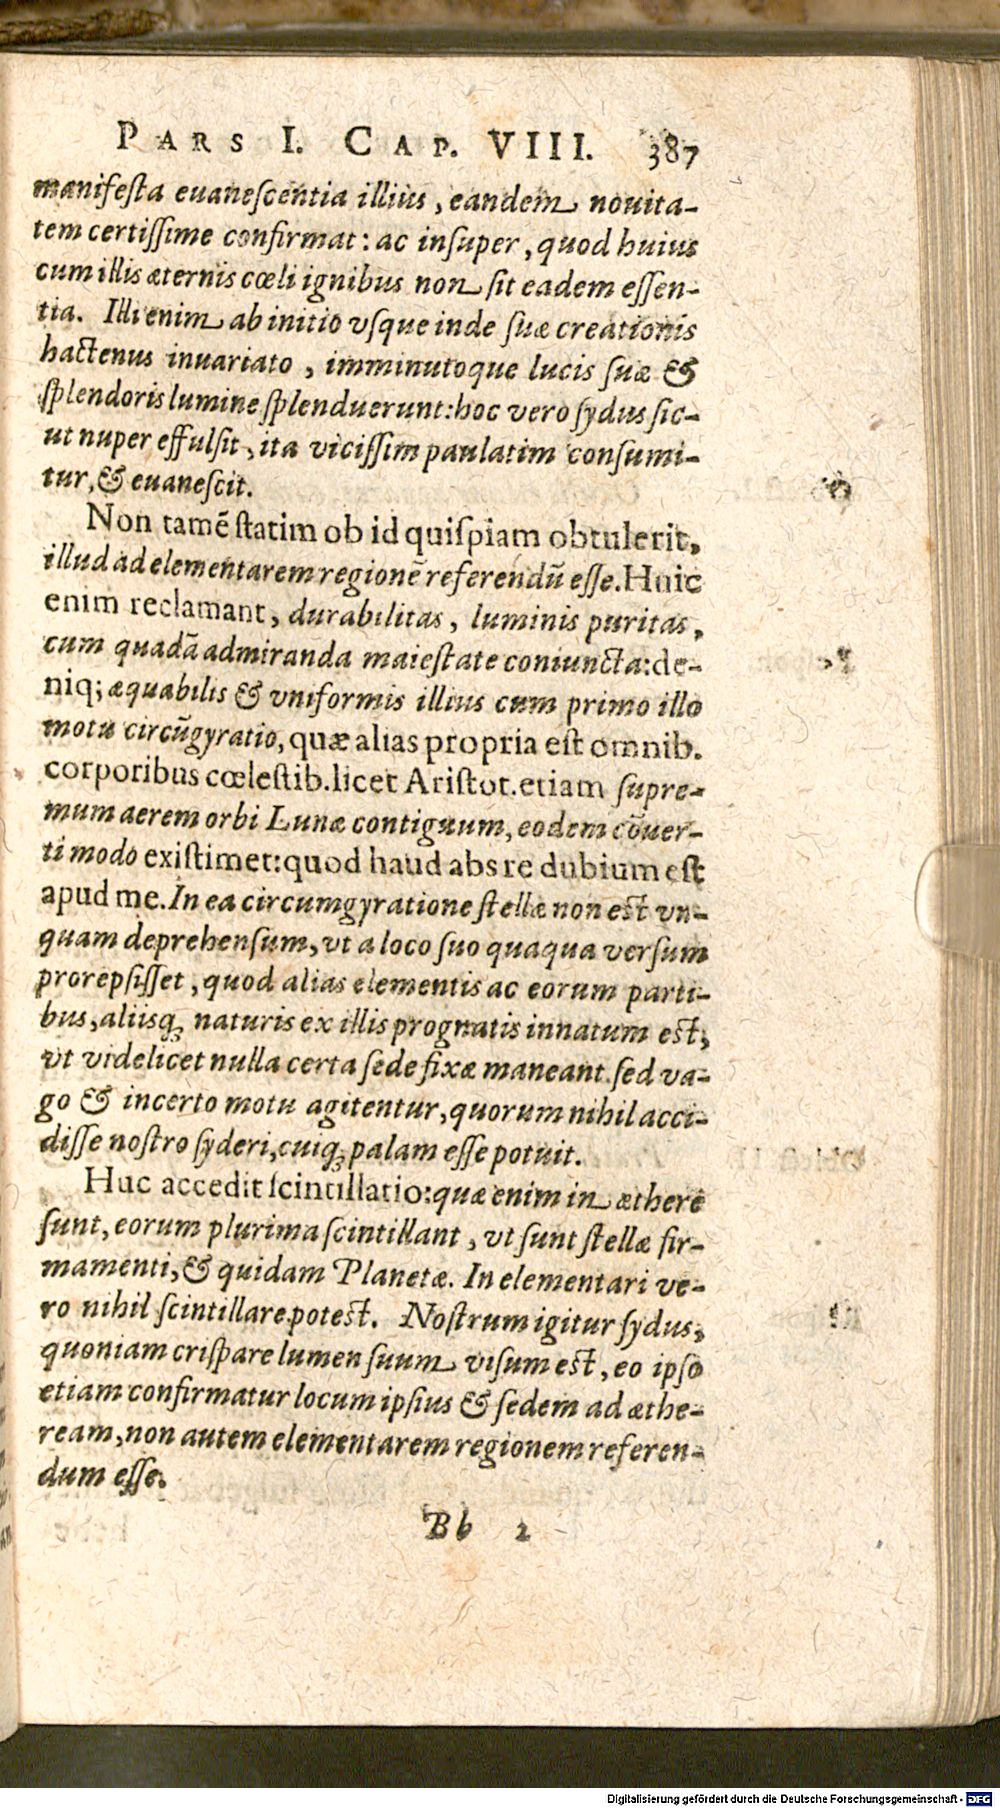 PARS I. CAP. VIII. 387
manifesta euanescentia illius, eandem nouita-
tem certißime confirmat: ac insuper, quod huius
cum illis æternis cœli ignibus non sit eadem essen-
tia. Illi enim ab initio vsque inde suæ creationis
hactenus inuariato, imminutoque lucis suæ &
splendoris lumine splenduerunt: hoc vero sydus sic-
ut nuper effulsit, ita vicissim paulatim consumi-
tur, & euanescit.
Non tamē statim ob id quispiam obtulerit,
illud ad elementarem regionē referendū esse. Huic
enim reclamant, durabilitas, luminis puritas,
cum quadā admiranda maiestate coniuncta: de-
niq; æquabilis & vniformis illius cum primo illo
motu circūgyratio, quæ alias propria est omnib.
corporibus cœlestib. licet Aristot. etiam supre-
mum aerem orbi Lunæ contiguum, eodem cōuer-
ti modo existimet: quod haud abs re dubium est
apud me. In ea circumgyratione stellæ non est vn-
quam deprehensum, vt a loco suo quaqua versum
prorepsisset, quod alias elementis ac eorum parti-
bus, aliisq; naturis ex illis prognatis innatum est,
vt videlicet nulla certa sede fixæ maneant sed va-
go & incerto motu agitentur, quorum nihil acci-
disse nostro syderi, cuiq; palam esse potuit.
Huc accedit scintillatio: quæ enim in æthere
sunt, eorum plurima scintillant, vt sunt stellæ fir-
mamenti, & quidam Planetæ. In elementari ve-
ro nihil scintillare potest. Nostrum igitur sydus,
quoniam crispare lumen suum visum est, eo ipso
etiam confirmatur locum ipsius & sedem ad æthe-
ream, non autem elementarem regionem referen-
dum esse.
Bb 2
Digitalisierung gefördert durch die Deutsche Forschungsgemeinschaft - DFG